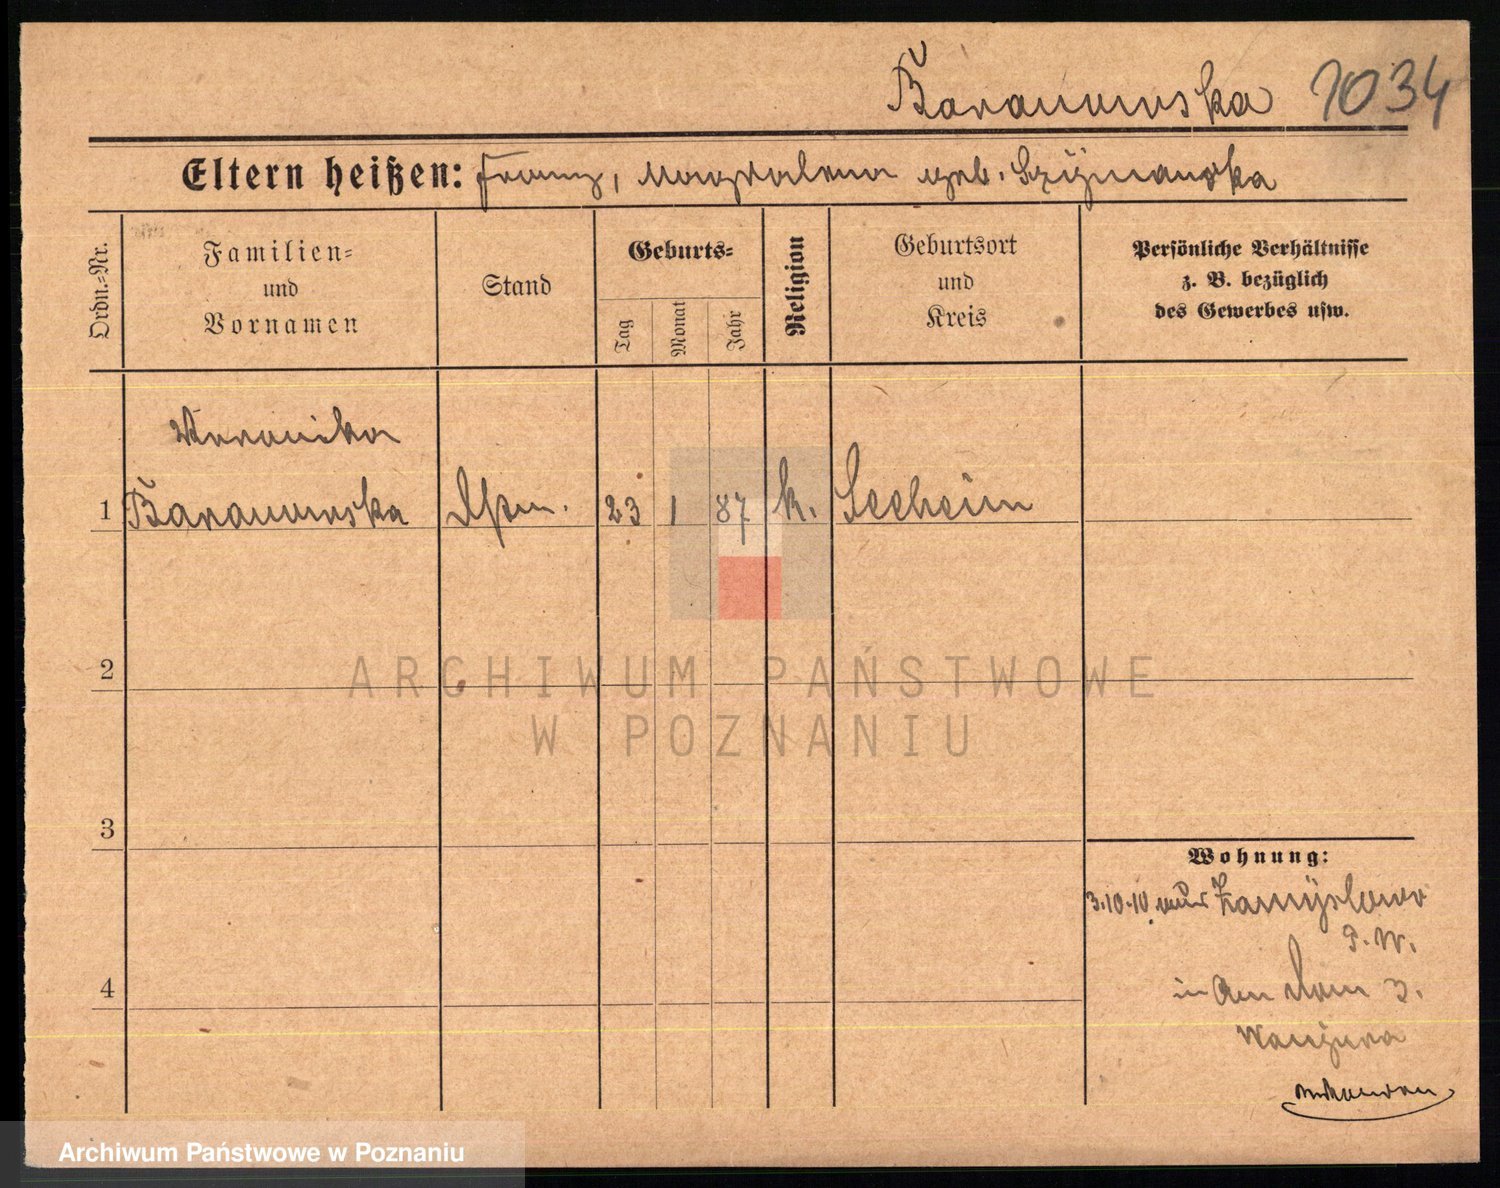 Baranowska 1034
Eltern heißen: Franz, Magdalena geb. Szÿmanska
Ordn.-Nr.
Familien-
und
Vornamen
Stand
Geburts-
Tag
Monat
Jahr
Religion
Geburtsort
und
Kreis
Persönliche Verhältnisse
z. B. bezüglich
des Gewerbes usw.
Veronika
1 Baranowska 23 1 87 k. Seeheim
2
3
4
ARCHIWUM PAŃSTWOWE
W POZNANIU
Wohnung:
3.10.10 aus Zamÿslowo
P. W.
in Am Dom 3.
Archiwum Państwowe w Poznaniu